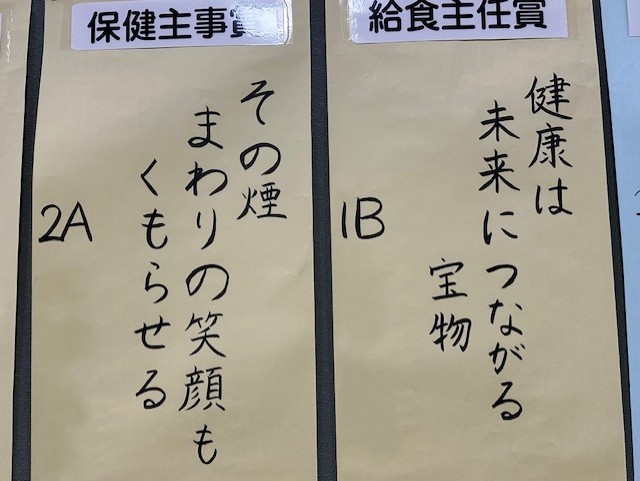 給食主任賞
健康は
未来につながる
宝物
1B
保健主事賞
その煙
まわりの笑顔も
くもらせる
2A